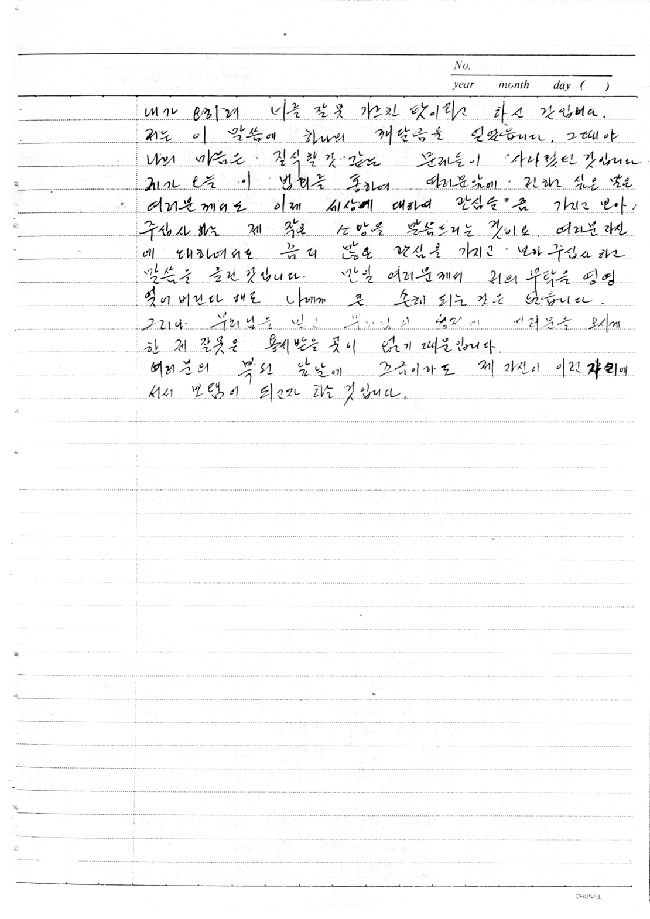 No.
year month day ( )
내가 오히려 너를 잘못 가르친 탓이라고 하신 것입니다.
저는 이 말씀에 하나의 깨달음을 얻었습니다. 그때야
나의 마음은 질식할것 같은 문제들이 사라졌던 것입니다
제가 오늘 이 법회를 통하여 여러분앞에 전하고 싶은 말은
여러분께서도 이제 세상에 대하여 관심을 좀 가지고 보아
주십사 하는 제 작은 소망을 말씀드리는 것이요 여러분 자신
에 대하여서도 좀더 많은 관심을 가지고 보아 주십사 하고
말씀을 드린 것입니다. 만일 여러분께서 저의 부탁을 영영
잊어 버린다 해도 나에게 큰 손해 되는 것은 없습니다.
그러나 여러분을 오시게
한 제 잘못은 용서받을 곳이 없기 때문입니다
여러분의 복된 앞날에 조금이라도 제 자신이 이런 자리에
서서 보탬이 되고자 하는 것입니다.